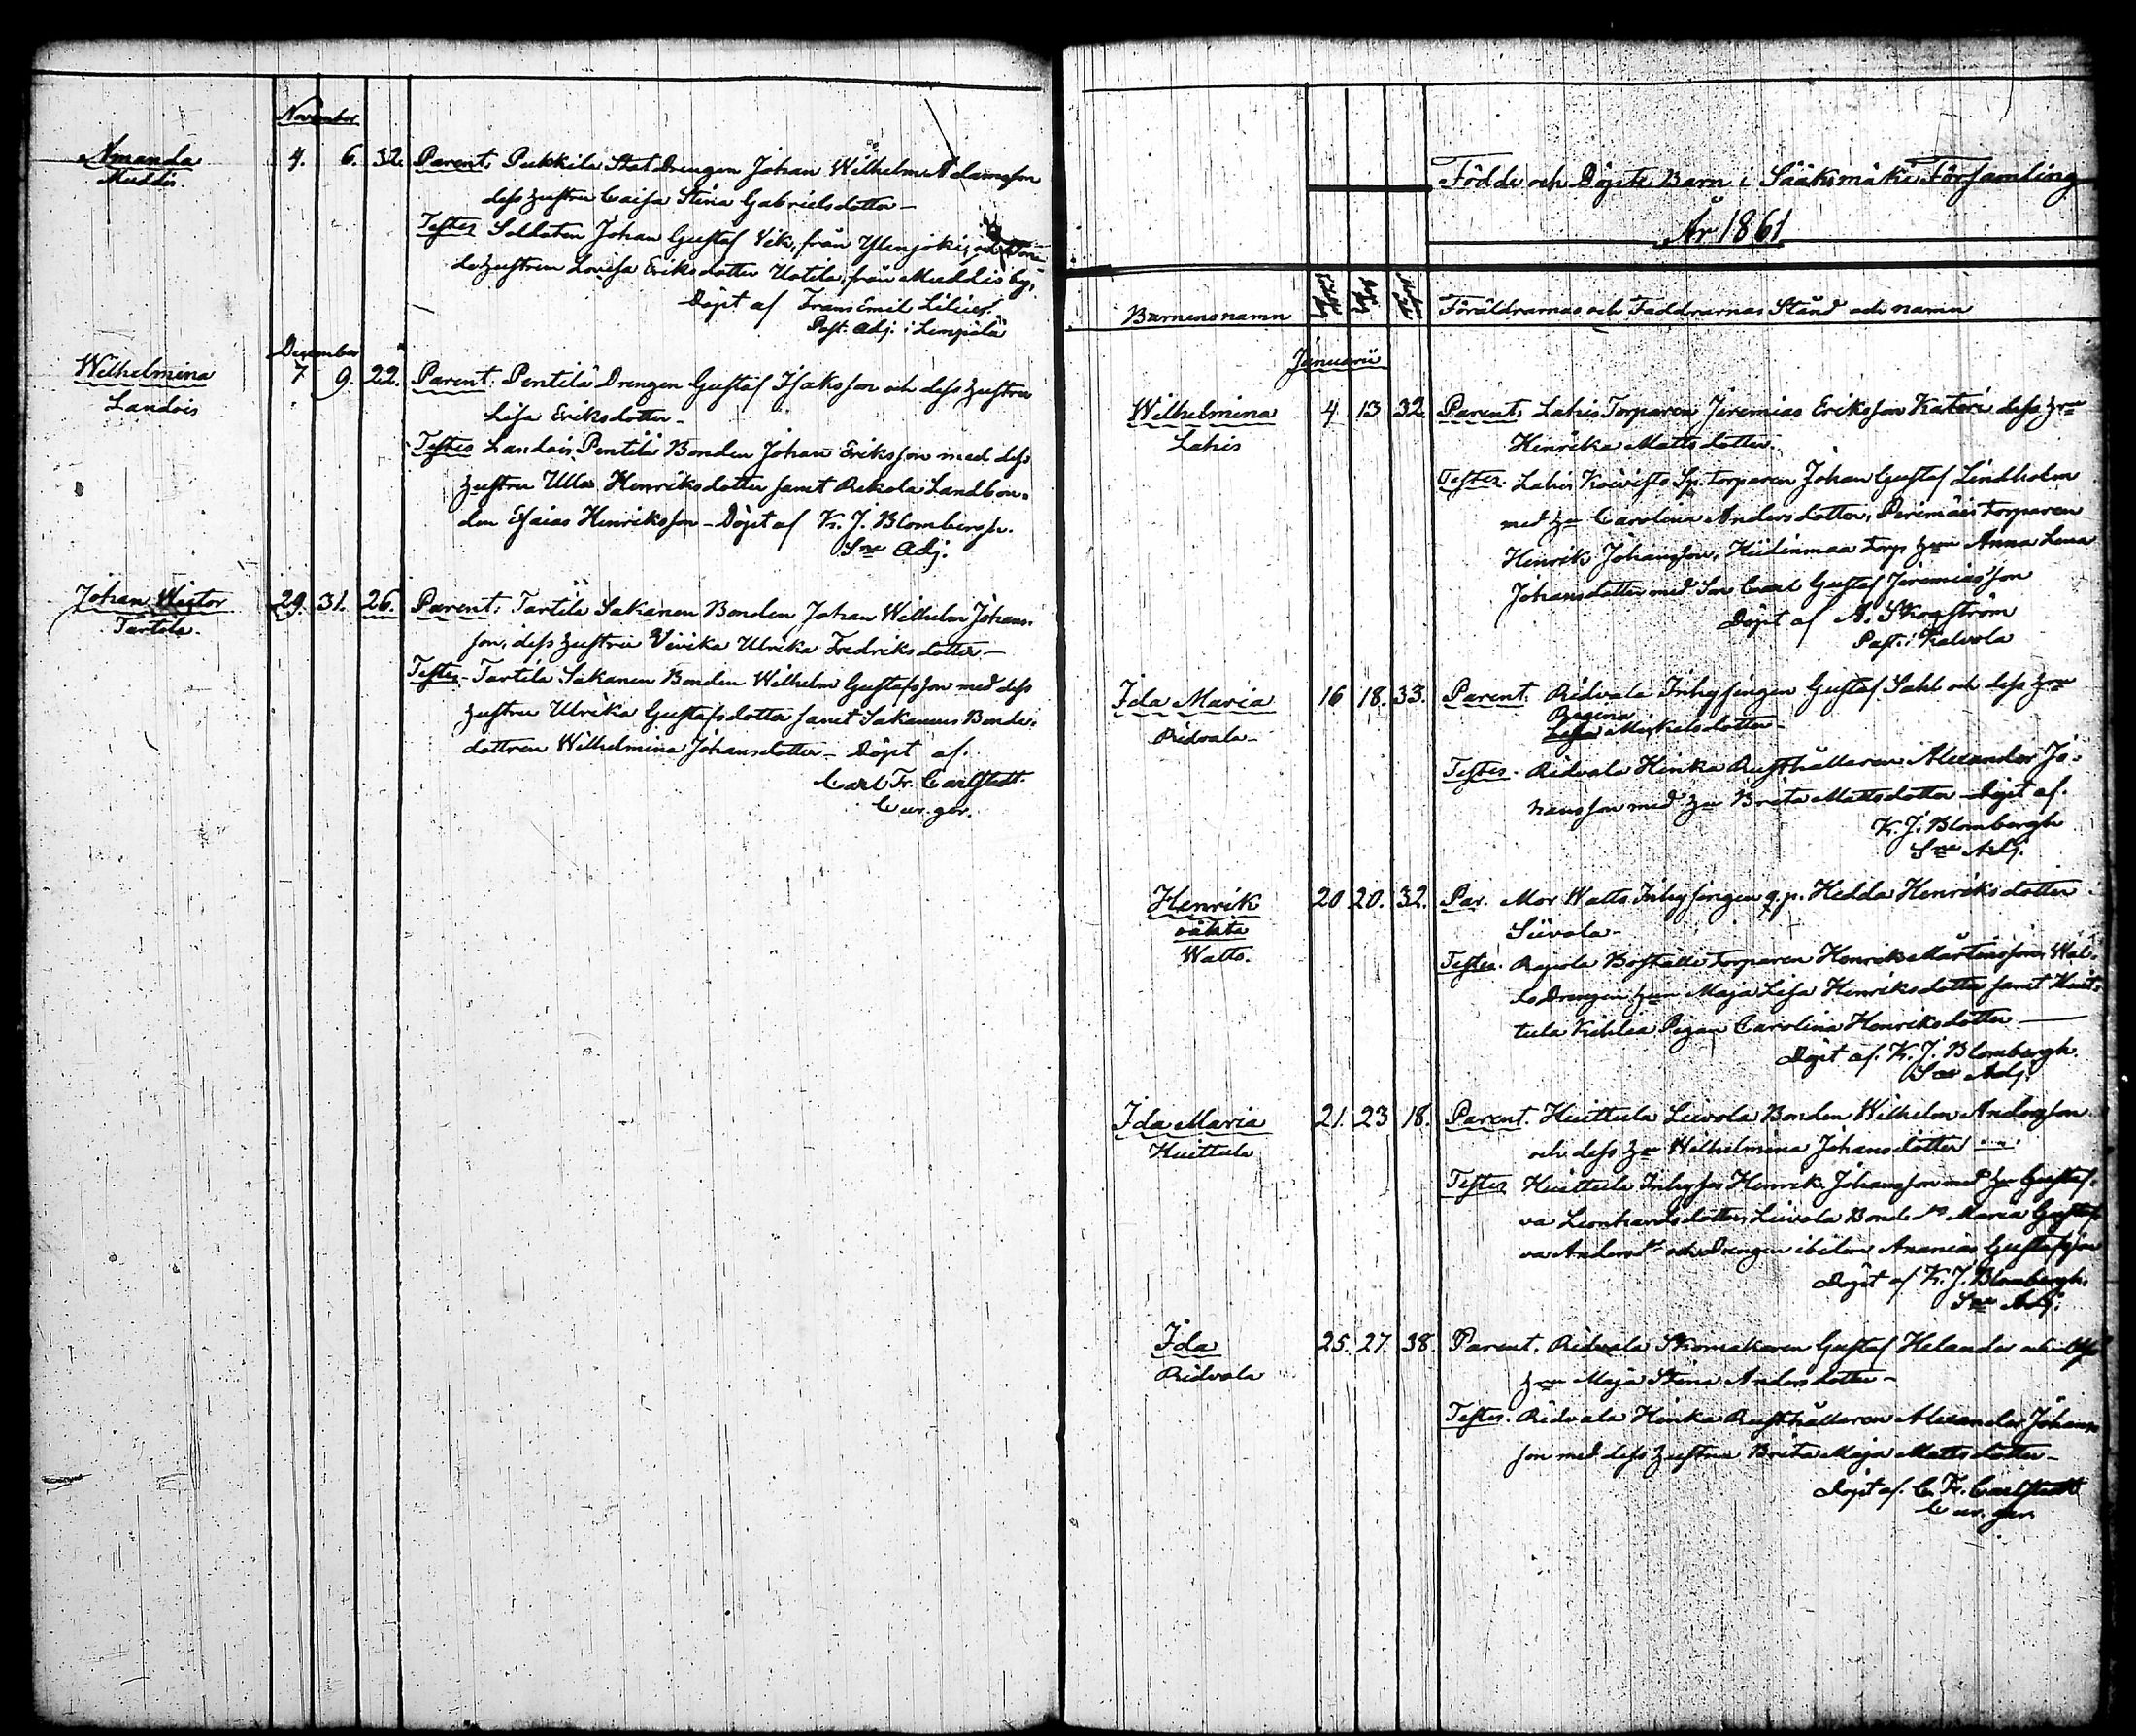 November
Amanda 4. 6. 32. Parent: Pukkila Statdrengen Johan Wilhelm Adamsson
Muddis. dess hustru Caisa Stina Gabrielsdotter –
Testes Soldaten Johan Gustaf Vik, från Ylenjoki, och Bon-
dehustrun Lovisa Eriksdotter Uotila, från Muddis by,
Döpt af Frans Emil Lilius.
Past. Adj. i Lempälä
December
Wilhelmina 7 9. 22. Parent: Pentilä Drengen Gustaf Isaksson och dess hustru
Landois Lisa Eriksdotter –
Testes Landois Pentilä Bonden Johan Eriksson med dess
hustru Ulla Henriksdotter samt Rekola Landbon-
den Esaias Henriksson – Döpt af K. J. Blombergh.
Sne Adj.
Johan Wictor 29. 31. 26. Parent: Tartila Sakanen Bonden Johan Wilhelm Johans-
Tartila. son, dess hustru Vivika Ulrika Fredriksdotter –
Testes – Tartila Sakanen Bonden Wilhelm Gustafsson med dess
hustru Ulrika Gustafsdotter samt Sakanens Bonde-
dottren Wilhelmina Johansdotter – Döpt af.
Carl Fr. Carlstedt.
Cur. ger.
Födde och Döpte Barn i Sääksmäki Församling
År 1861
Barnens namn Föräldrarnas och Faddrarnas Stånd och namn
Januarii
Wilhelmina 4 13 32. Parent: Lahis Torparen Jeremias Eriksson Kateri dess hru
Lahis Henrika Mattsdotter.
Testes. Lahis Koivisto Sp. torparen Johan Gustaf Lindholm
med hu Carolina Andersdotter, Perimäis torparen
Henrik Johansson, Hiidenmaa torp. hun Anna Lena
Johansdotter med Son Carl Gustaf Jeremiasson
Döpt af A. Skogström
Past. i Kalvola
Ida Maria 16 18. 33. Parent. Ridvala Inhysingen Gustaf Sahl och dess hru
Ridvala – Regina
Lisa Mickelsdotter –
Testes. Ridvala Hinka Rusthållaren Alexander Jo-
hansson med hu Brita Mattsdotter – döpt af.
K. J. Blombergh
Sne Adj.
Henrik 20 20. 32. Par. Mor Watto Inhysingen q.p. Hedda Henriksdotter
oäkta Siivola –
Watto. Testes. Rapola Boställe torparen Henrik Mårtensson, Wal-
lo Drengen hun Maja Lisa Henriksdotter samt Huit-
tula Kihlia Pigan Carolina Henriksdotter –
Döpt af. K. J. Blombergh.
Sne Adj.
Ida Maria 21. 23 18. Parent. Huittula Liivola Bonden Wilhelm Andersson
Huittula och dess hu Wilhelmina Johansdotter
Testes Huittula Inhyses Henrik Johansson med hu Gustaf-
va Leonhardsdotter, Liivola Bonde dr Maria Gustaf-
va Andersdr och Drengen ibidem Ananias Gustafsson
Döpt af K. J. Blombergh.
Sne Adj.
Ida 25. 27. 38. Parent. Ridvala Skomakaren Gustaf Helander och dess
Ridvala hru Maja Stina Andersdotter –
Testes. Ridvala Hinka Rusthållaren Alexander Johans-
son med dess hustru Brita Maja Mattsdotter –
Döpt af. C. Fr. Carlstedt
Cur. ger.